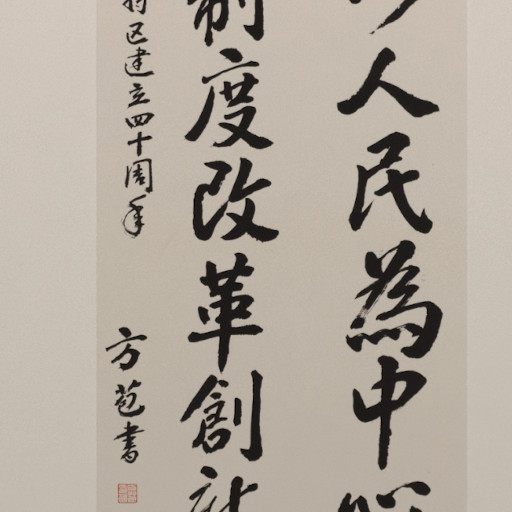 人民為中
制度改革創新
特区建立四十周年
方苞書